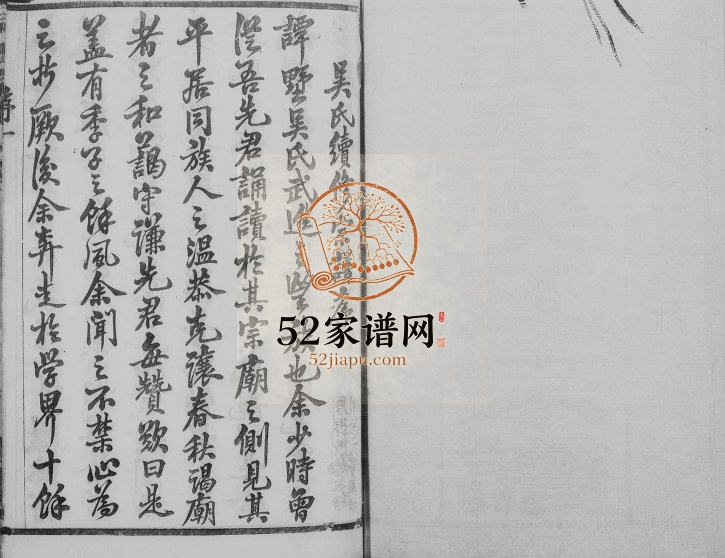 吳氏續修宗譜序
譚墅吳氏武進之望族也余少時曾
從吾先君誦讀於其宗廟之側見其
平居同族人之温恭克讓春秋謁廟
者之和藹守謙先君每贊歎曰是
蓋有季子之餘風余聞之不禁心為
之折厥後余奔走於学界十餘
序一
52家谱网
52jiapu.com